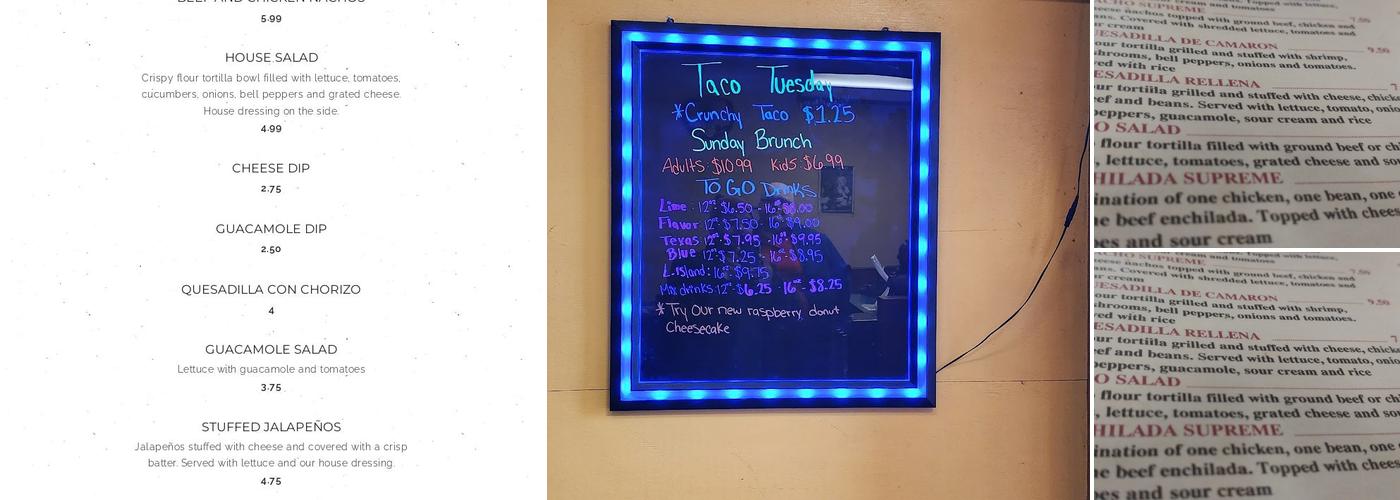 BEEF AND CHICKEN NACHOS
5.99
HOUSE SALAD
Crispy flour tortilla bowl filled with lettuce, tomatoes,
cucumbers, onions, bell peppers and grated cheese.
House dressing on the side.
4.99
CHEESE DIP
2.75
GUACAMOLE DIP
2.50
QUESADILLA CON CHORIZO
4
GUACAMOLE SALAD
Lettuce with guacamole and tomatoes
3.75
STUFFED JALAPEÑOS
Jalapeños stuffed with cheese and covered with a crisp
batter. Served with lettuce and our house dressing.
4.75
Taco Tuesday
*Crunchy Taco $1.25
Sunday Brunch
Adults $10.99 Kids $6.99
TO GO Drinks
Lime - 12oz- $6.50 - 16oz $8.00
Flavor 12oz- $7.50 - 16oz $9.00
Texas 12oz- $7.95 - 16oz $9.95
Blue 12oz- $7.25 - 16oz- $8.95
L.Island: 16oz $9.75
Mix drinks 12oz- $6.25 - 16oz- $8.25
*Try Our new raspberry donut
Cheesecake
NACHO SUPREME
cheese nachos topped with ground beef, chicken and 7.50
ans. Covered with shredded lettuce, tomatoes and
ur cream
UESADILLA DE CAMARON 9.50
our tortilla grilled and stuffed with shrimp,
shrooms, bell peppers, onions and tomatoes.
ved with rice
ESADILLA RELLENA 7
ur tortilla grilled and stuffed with cheese, chick
ef and beans. Served with lettuce, tomato, onio
peppers, guacamole, sour cream and rice
O SALAD
flour tortilla filled with ground beef or ch
, lettuce, tomatoes, grated cheese and so
HILADA SUPREME
ination of one chicken, one bean, one
e beef enchilada. Topped with chees
oes and sour cream
ACHO SUPREME
cheese nachos topped with ground beef, chicken and 7.50
ans. Covered with shredded lettuce, tomatoes and
ur cream
UESADILLA DE CAMARON 9.50
our tortilla grilled and stuffed with shrimp,
shrooms, bell peppers, onions and tomatoes.
ved with rice
ESADILLA RELLENA 7
ur tortilla grilled and stuffed with cheese, chick
ef and beans. Served with lettuce, tomato, onio
peppers, guacamole, sour cream and rice
O SALAD
flour tortilla filled with ground beef or ch
, lettuce, tomatoes, grated cheese and so
HILADA SUPREME
ination of one chicken, one bean, one
e beef enchilada. Topped with chees
oes and sour cream